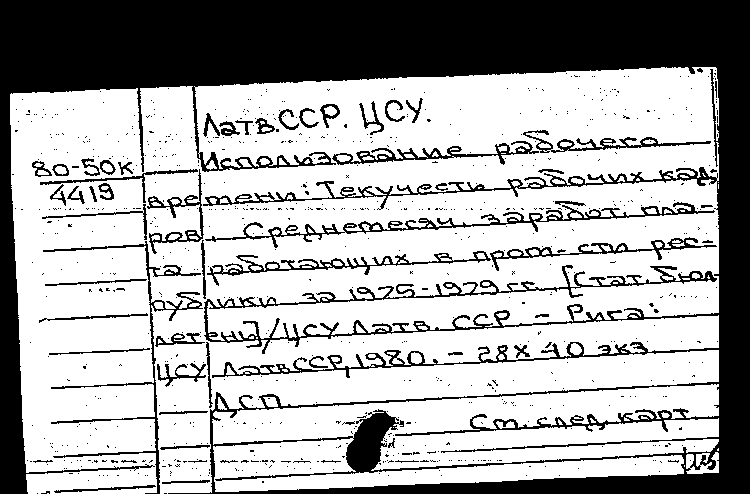 Латв. ССР. ЦСУ.
80-50к
4419
Использование рабочего
времени: Текучести рабочих кад-
ров. Среднемесяч. заработ. пла-
та работающих в пром-сти рес-
публики за 1975-1979 гг. [Стат. бюл-
летень]/ЦСУ Латв. ССР - Рига:
ЦСУ ЛатвССР, 1980. - 28 X 40 экз
ДСП.
См. след. карт.